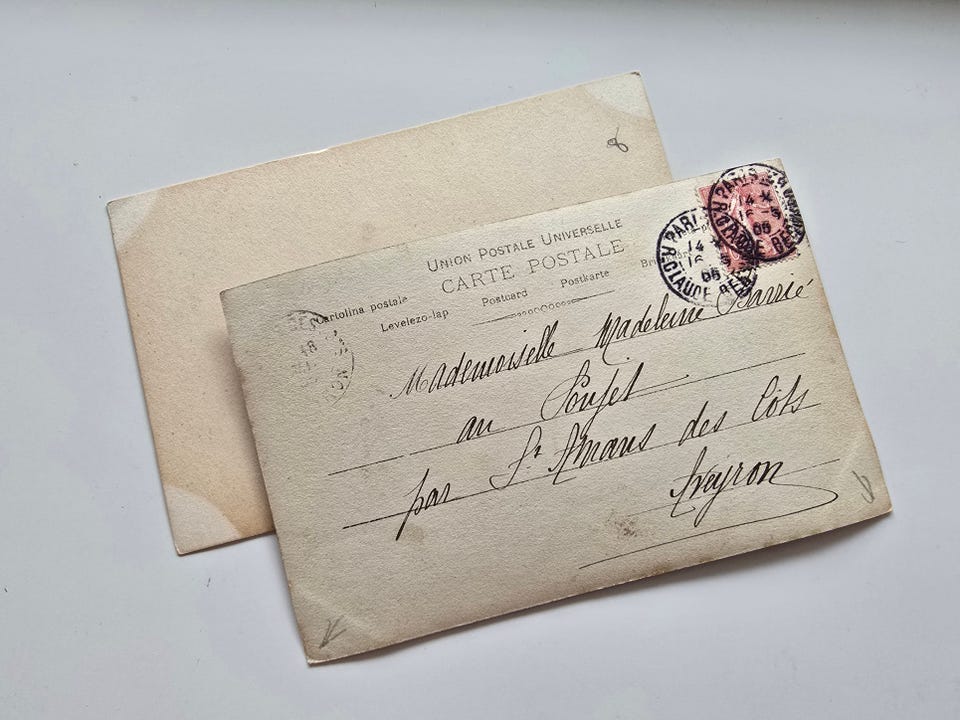 8
UNION POSTALE UNIVERSELLE
CARTE POSTALE
Cartolina postale Levelezo-lap Postcard Postkarte
PARIS
14 *
16 - 5
05
R. CLAUDE BER
PARIS
14 *
16 - 5
05
R. CLAUDE BER
48
Mademoiselle Madeleine Barrié
au Poujet
par St Amans des Cots
Aveyron